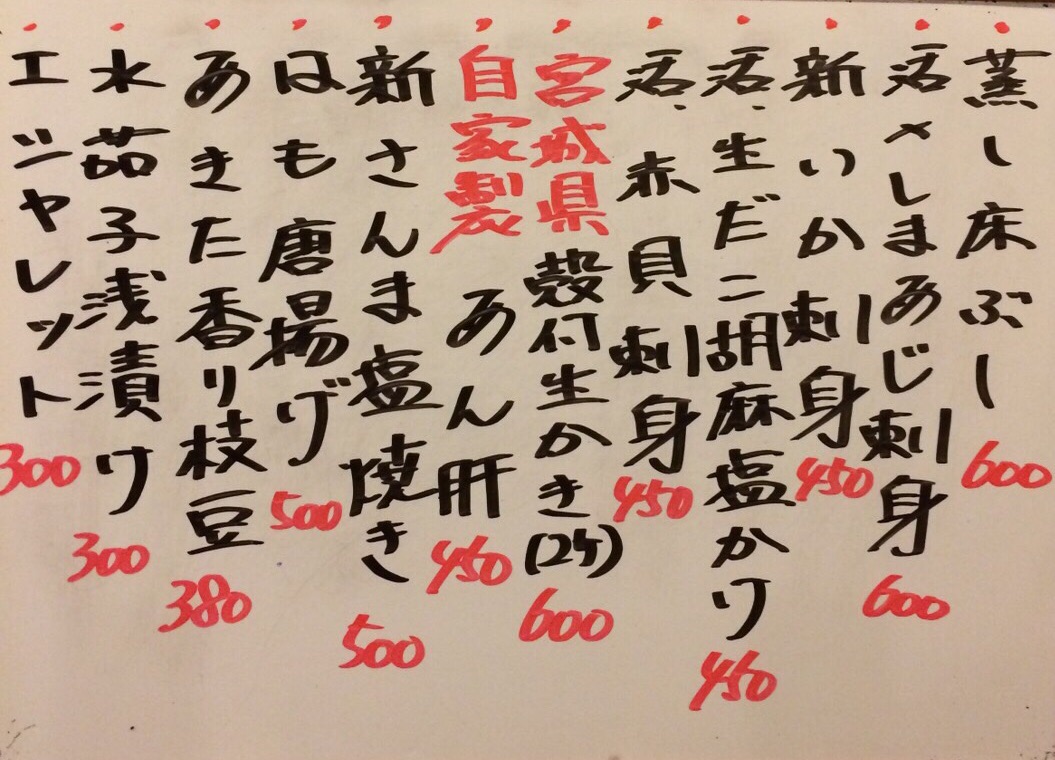 蒸し床ぶし 600
活〆しまあじ刺身 600
新いか刺身 450
活、生だこ胡麻塩かけ 450
活、赤貝刺身 450
宮城県殻付生かき(2ケ) 600
自家製あん肝 450
新さんま塩焼き 500
はも唐揚げ 500
あきた香り枝豆 380
水茄子浅漬け 300
エシャレット 300